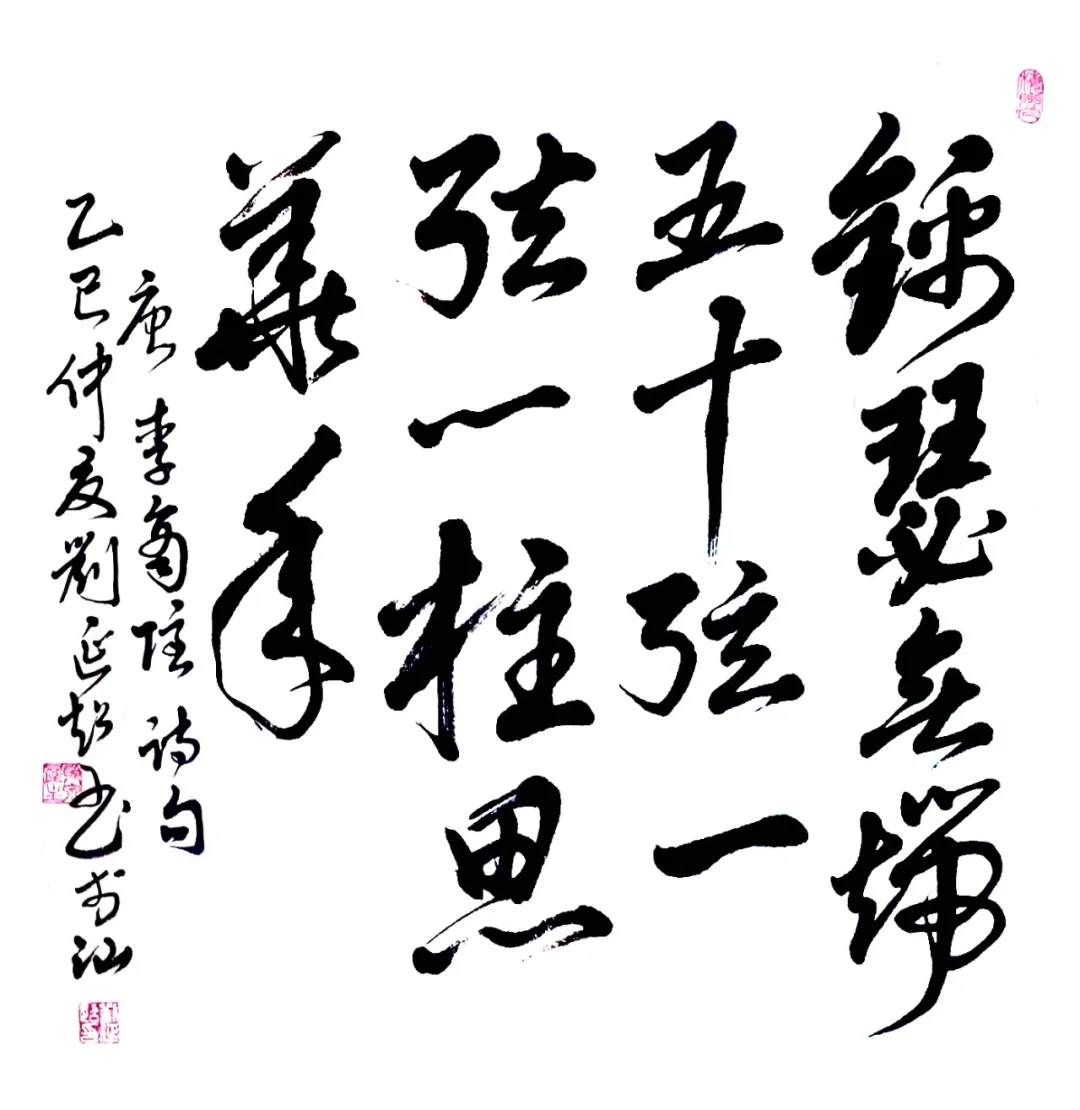 錦瑟無端
五十弦一
弦一柱思
華年
唐李商隱詩句
乙巳仲夏劉延超书於汕